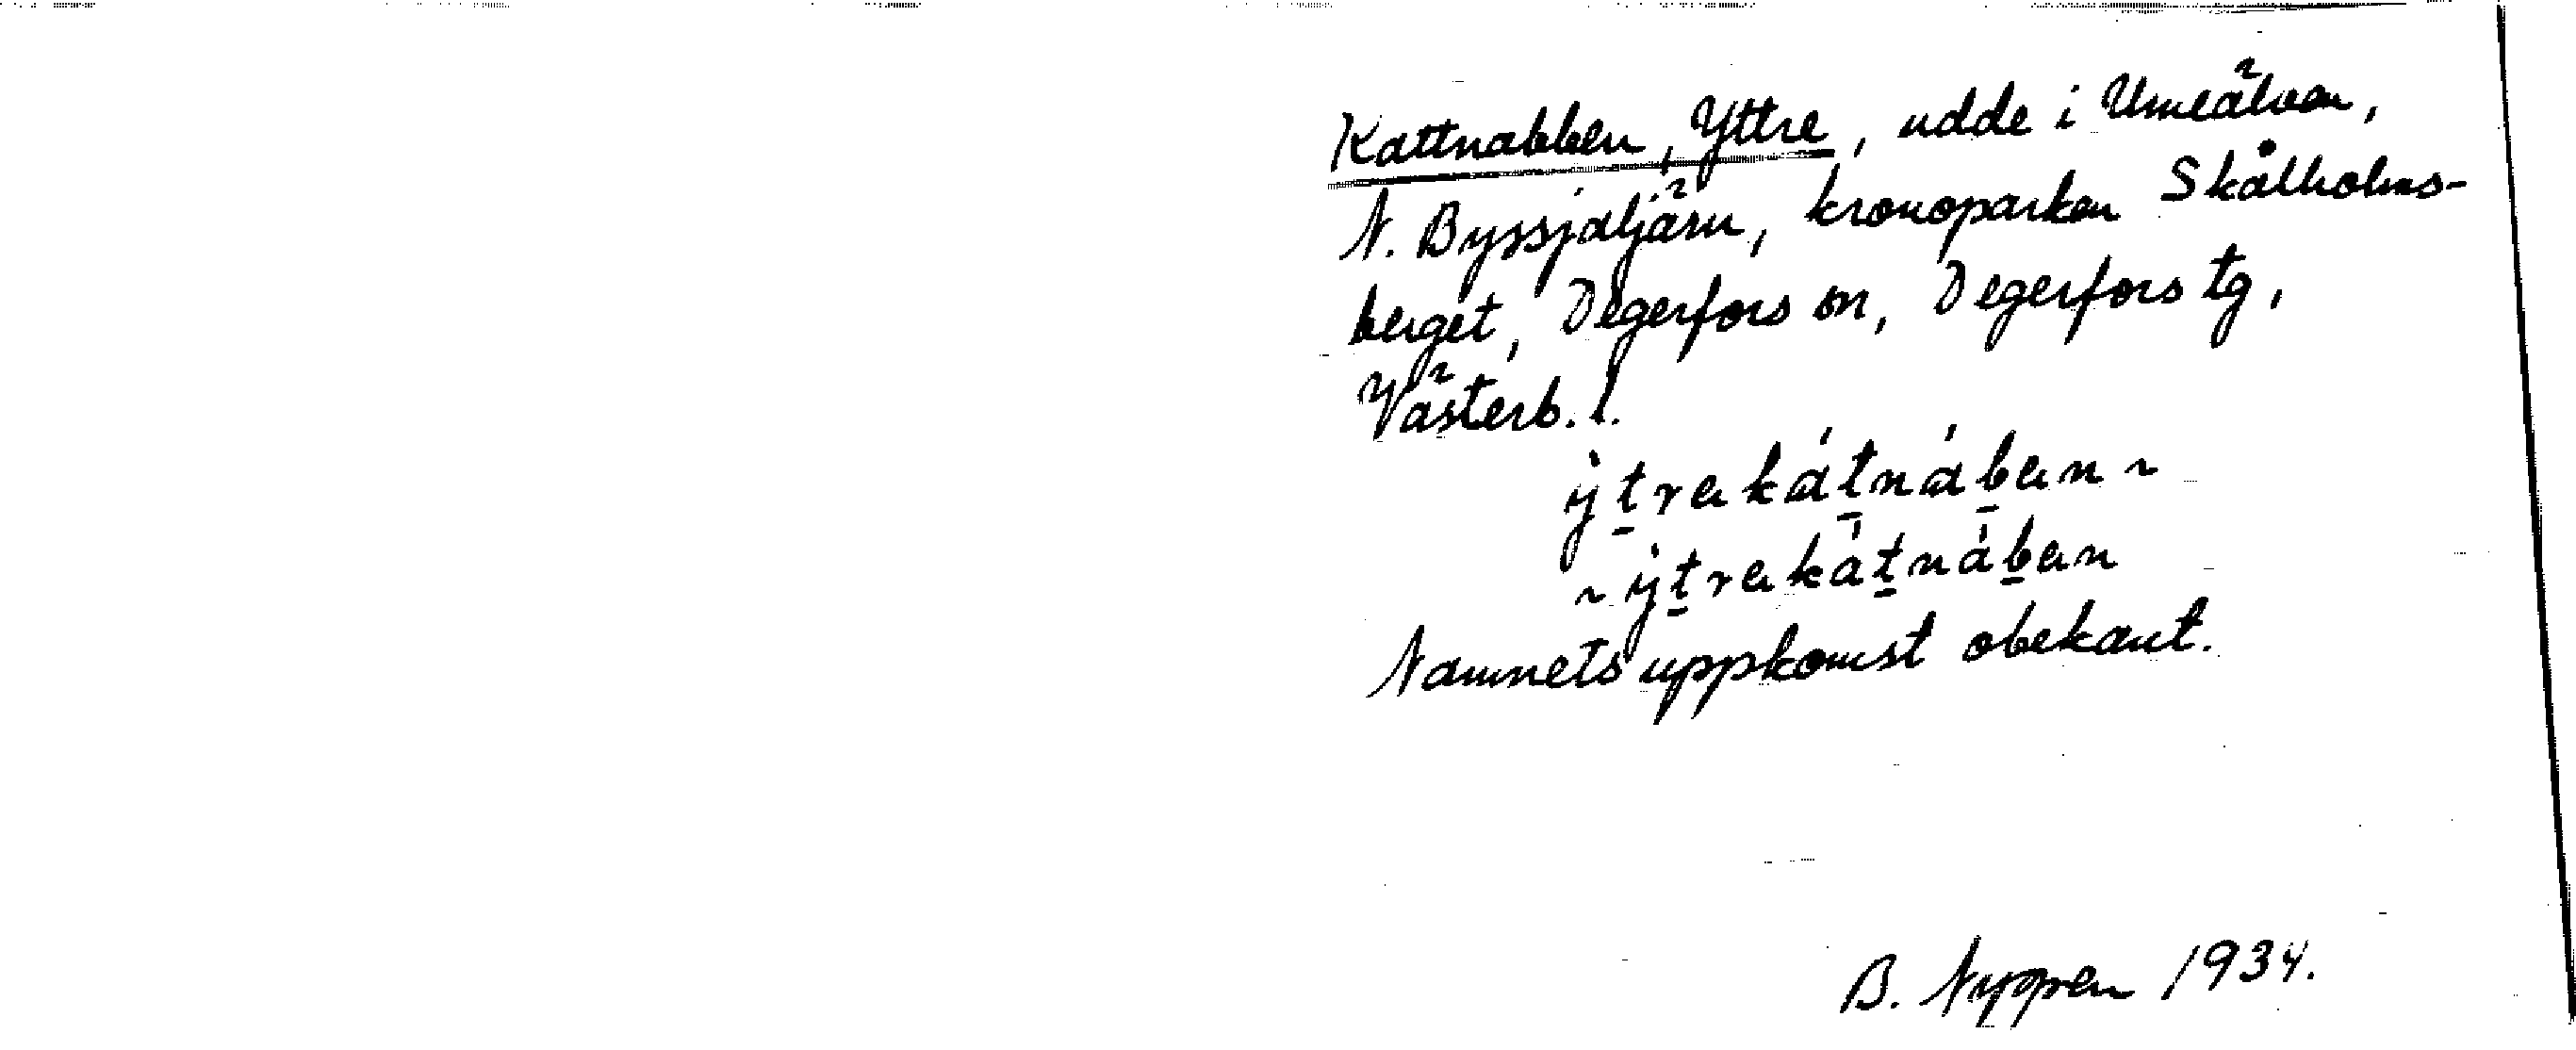 Kattnabben, Yttre, udde i Umeälven,
N. Byssjaljärn, kronoparken Skålholms-
berget, Degerfors sn, Degerfors tg,
Västerb. l.
ỳt̲rekát̲náb̲en ~
~ ỳt̲rekát̲náb̲en
Namnets uppkomst obekant.
B. Nyppen 1934.